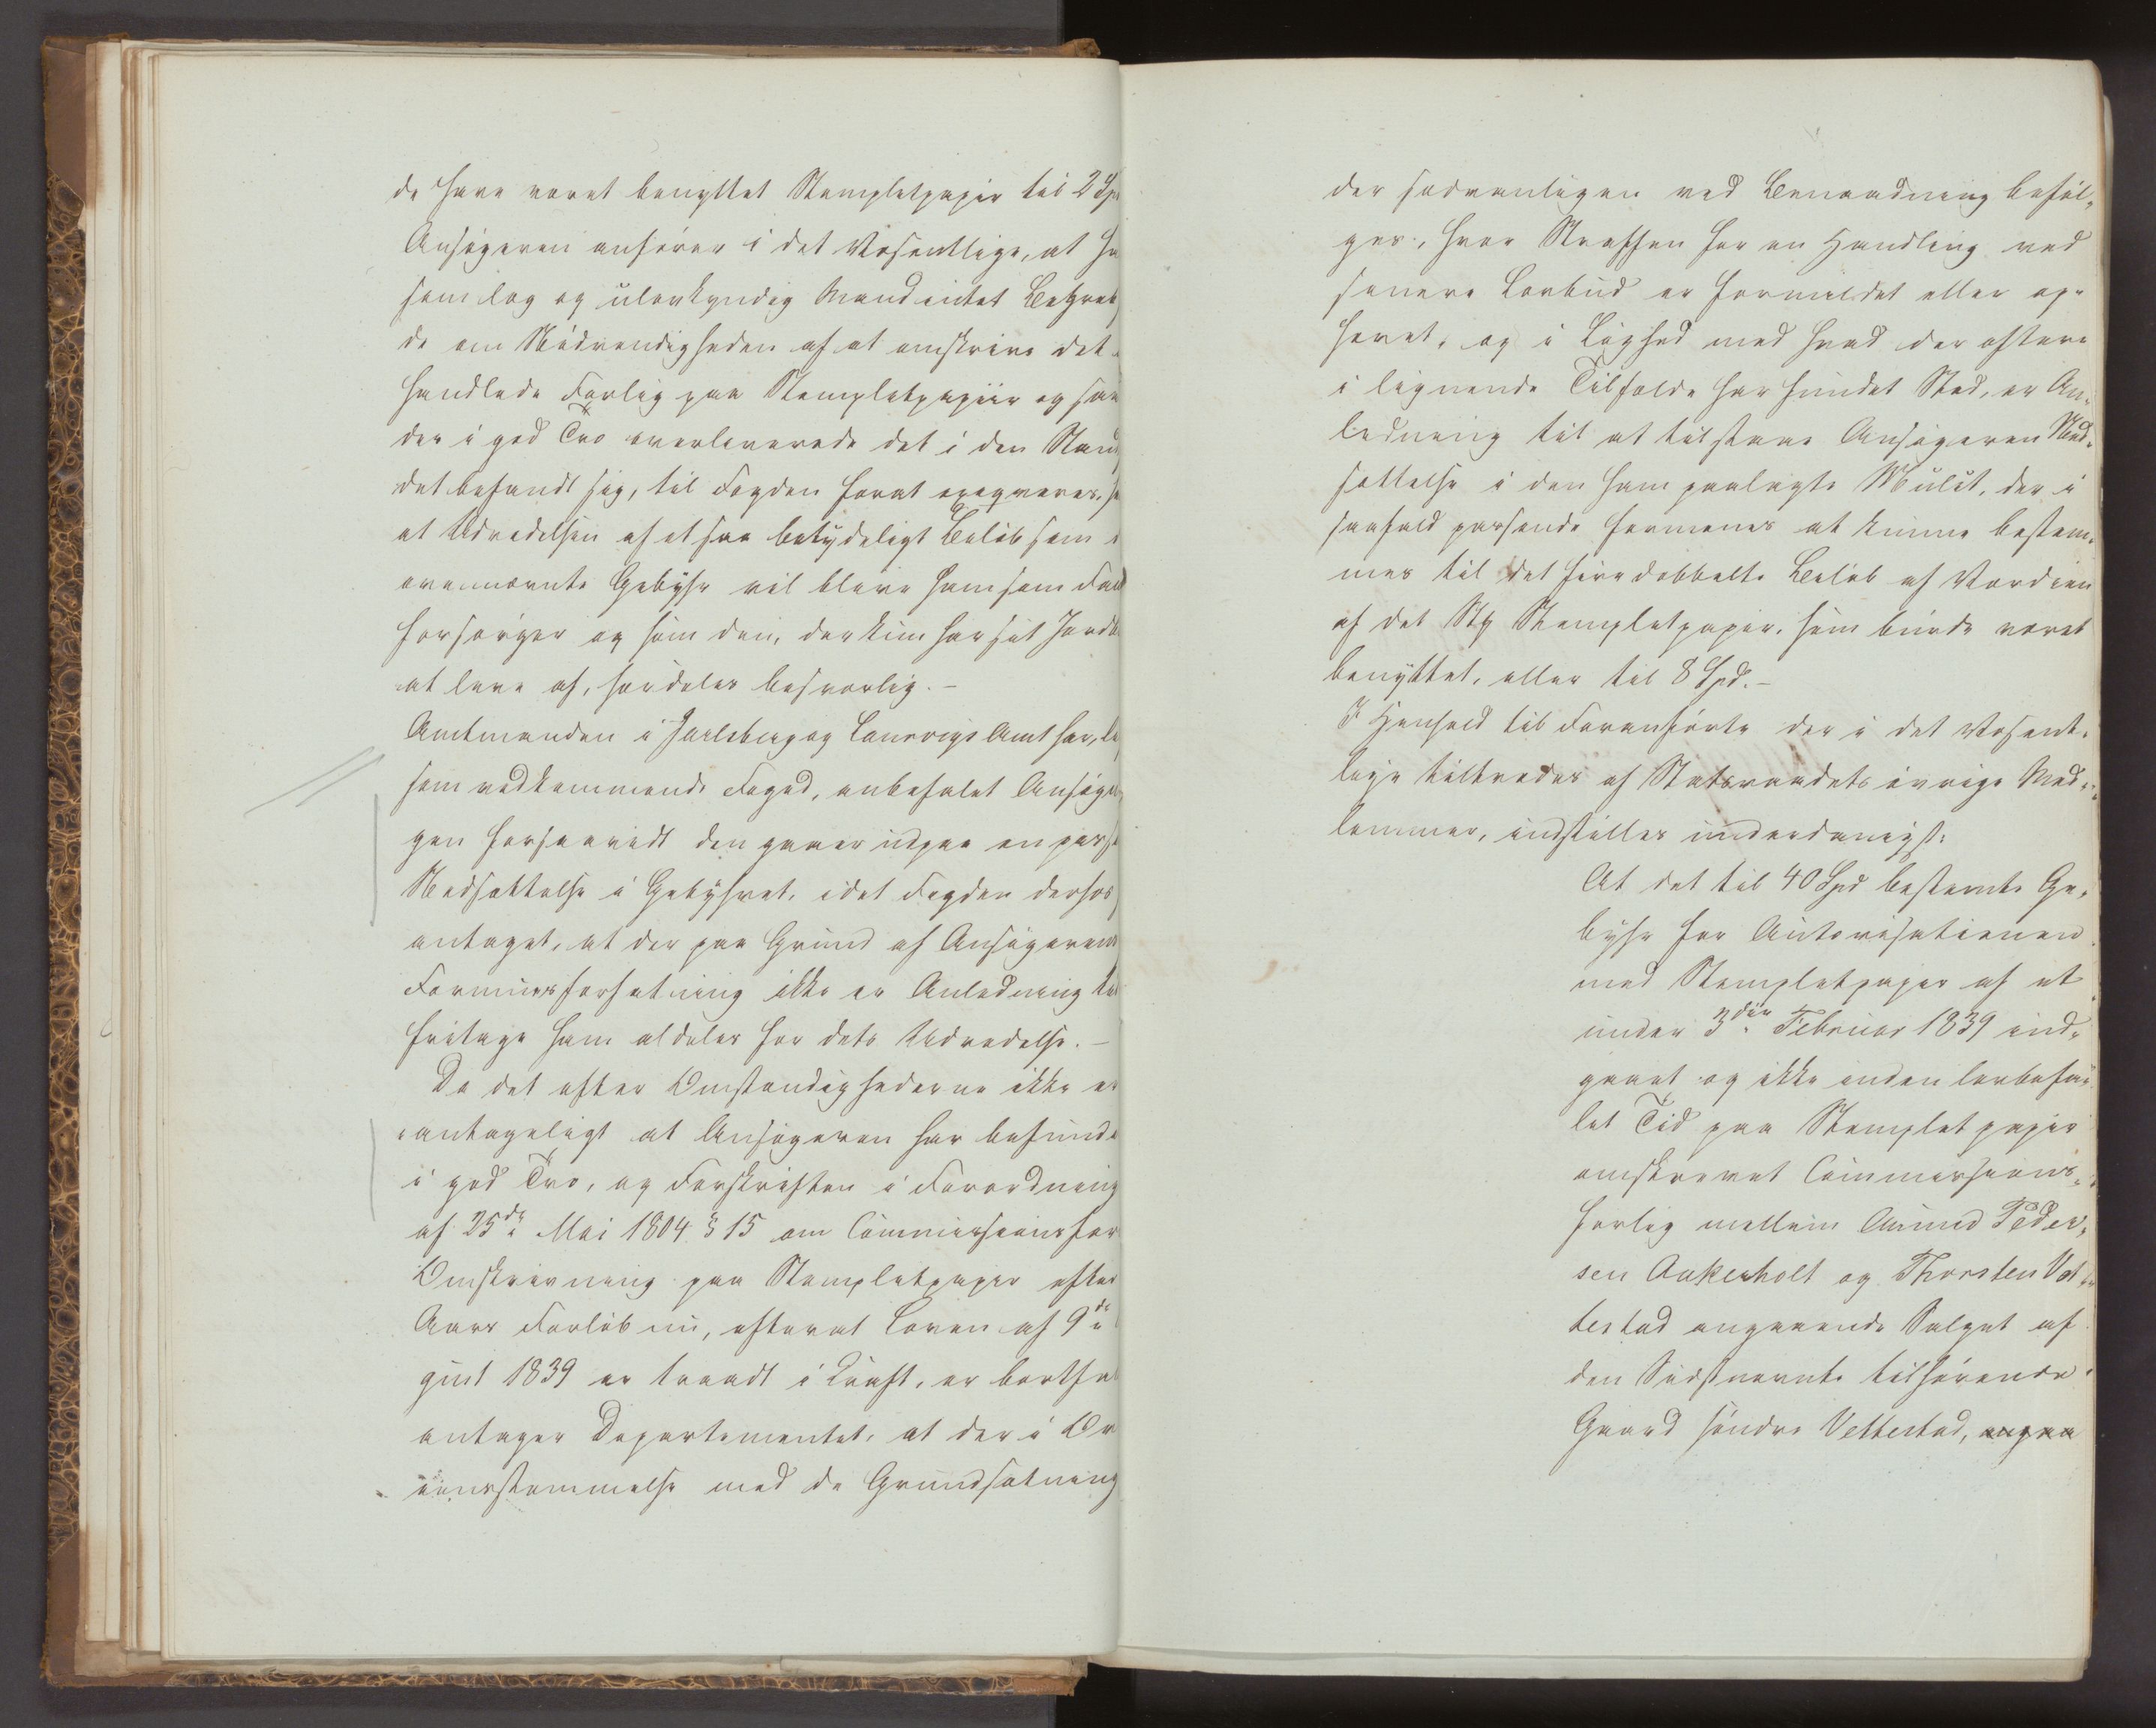 de have været benyttet Stempletpapir til 2 Spd
Ansøgeren anfører i det Væsentlige, at ha
som læg og ulovkyndig Mand intet Begreb
de om Nødvendigheden af at omskrive det
handlede Forlig paa Stempletpapiir og saa
der i god Tro overleverede det i den Stand
det befandt sig, til Fogden forat exeqveres, sa
at Udredelsen af et saa betydeligt Beløb som
ovennævnte Gebyhr vil blive ham som Fa
forsørger og som den, der kun har sit Jordb
at leve af, særdeles besværlig. –
Amtmanden i Jarlsberg og Laurvigs Amt har, li
som vedkommende Foged, anbefalet Ansøgn
gen forsaavidt den gaaer udpaa en pass
Nedsættelse i Gebyhret, idet Fogden derhos
antaget, at der paa Grund af Ansøgerens
Formuesforfatning ikke er Anledning til
fritage ham aldeles for dets Udredelse. –
Da det efter Omstændighederne ikke er
uantageligt at Ansøgeren har befunde
i god Tro, og Forskriften i Forordning
af 25de Mai 1804 § 15 om Commissionsfor
Omskrivning paa Stempletpapir efter
Aars Forløb nu, efterat Loven af 9de
gust 1839 er traadt i Kraft, er bortfal
antager Departementet, at der i Ov
eensstemmelse med de Grundsætning
der sædvanligen ved Benaadning beføl-
ges, hvor Straffen for en Handling ved
senere Lovbud er formildet eller op-
hævet, og i Lighed med hvad der oftere
i lignende Tilfælde har fundet Sted, er An-
ledning til at tilstaae Ansøgeren Ned-
sættelse i den ham paalagte Mulct, der i
saafald passende formenes at kunne bestem-
mes til det firedobbelte Beløb af Værdien
af det Stp Stempletpapir, som burde været
benyttet, eller til 8 Spd. –
I Henhold til Foranførte der i det Væsent-
lige tiltrædes af Statsraadets øvrige Med-
lemmer, indstilles underdanigst:
At det til 40 Spd bestemte Ge-
byhr for Autorisationen
med Stempletpapir af et
under 3die Februar 1839 ind-
gaaet og ikke inden lovbefa-
let Tid paa Stempletpapir
omskrevet Commissions-
forlig mellem Amund Peder-
sen Aakerholt og Thorsten Vet-
testad angaaende Salget af
den Sidstnævnte tilhørende
Gaard søndre Vettestad, angaa